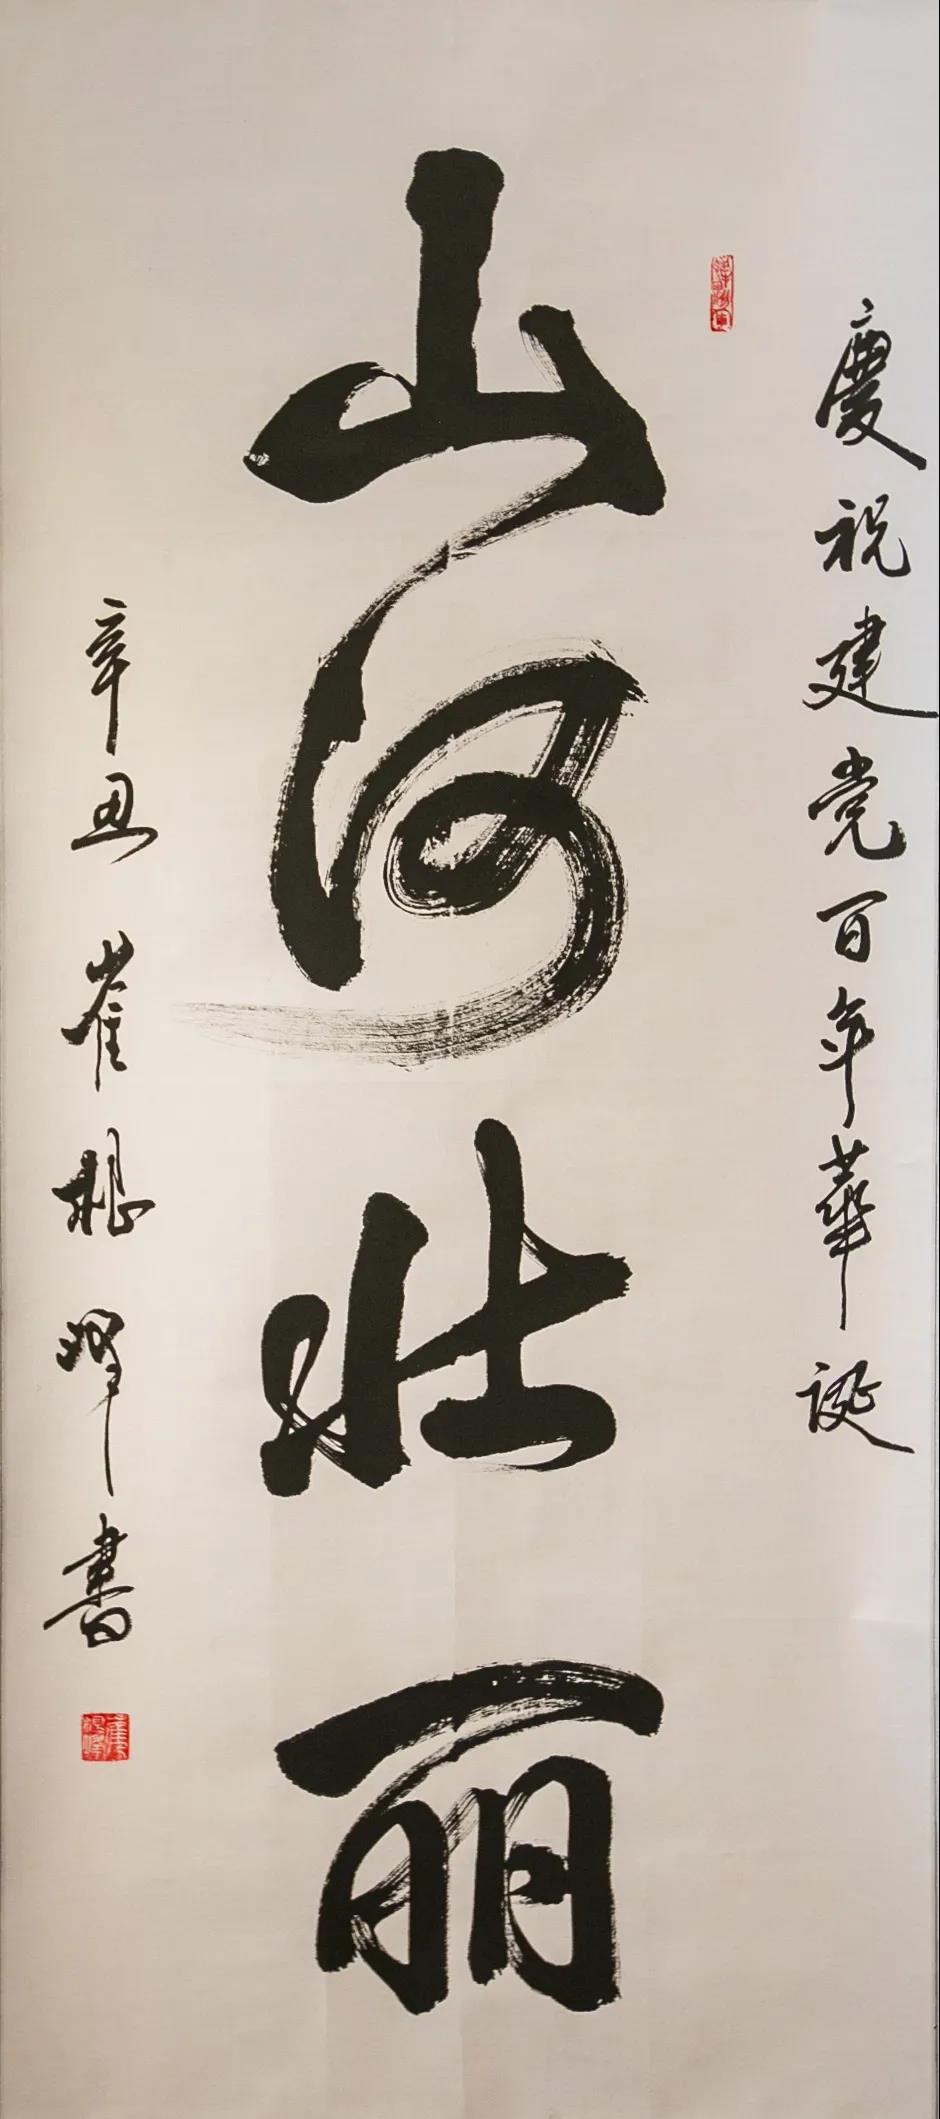 慶祝建党百年華誕
山河壮丽
辛丑崔根峰書